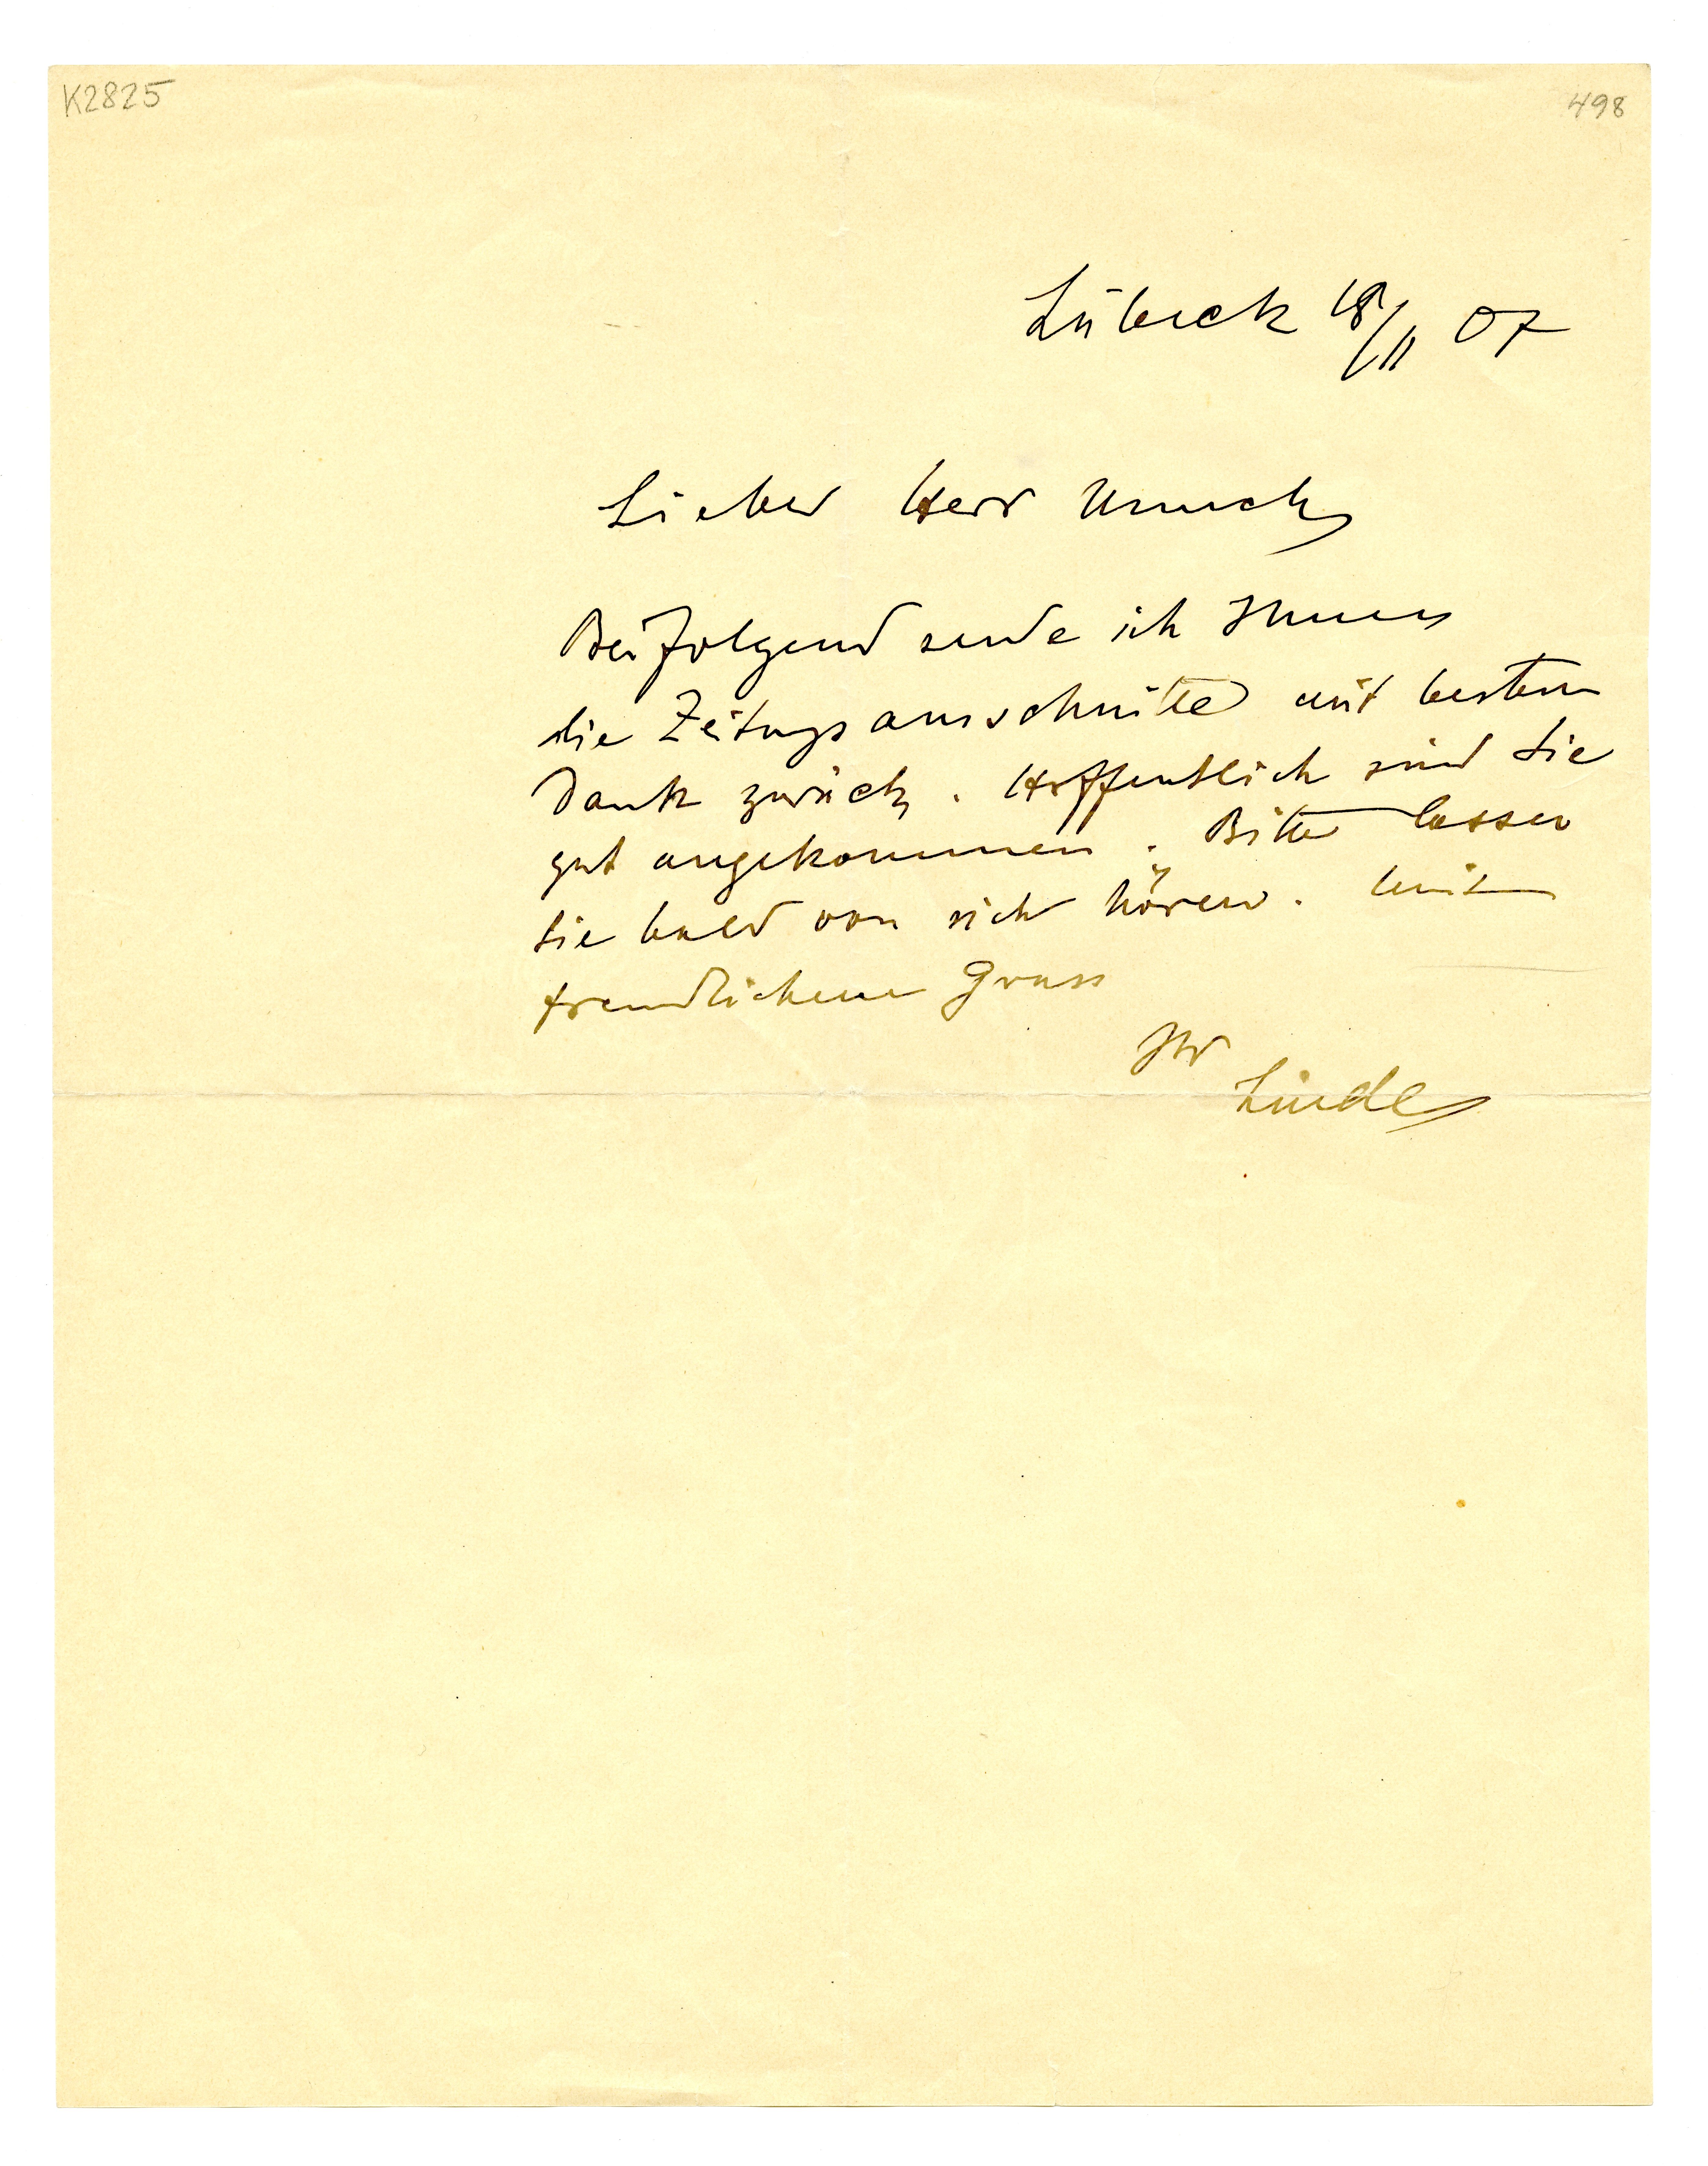 K2825
498
Lübeck 18/11 07
Lieber Herr Munch
Beifolgend sende ich Ihnen
die Zeitungsausschnitte mit bestem
Dank zurück. Hoffentlich sind Sie
gut angekommen. Bitte lassen
Sie bald von sich hören. Mit
freundlichem Gruss
Ihr
Linde